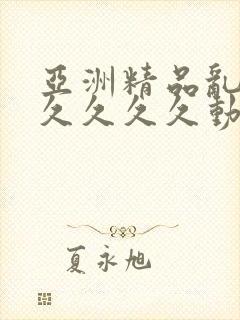 亞洲精品亂
久久久久動
夏永旭